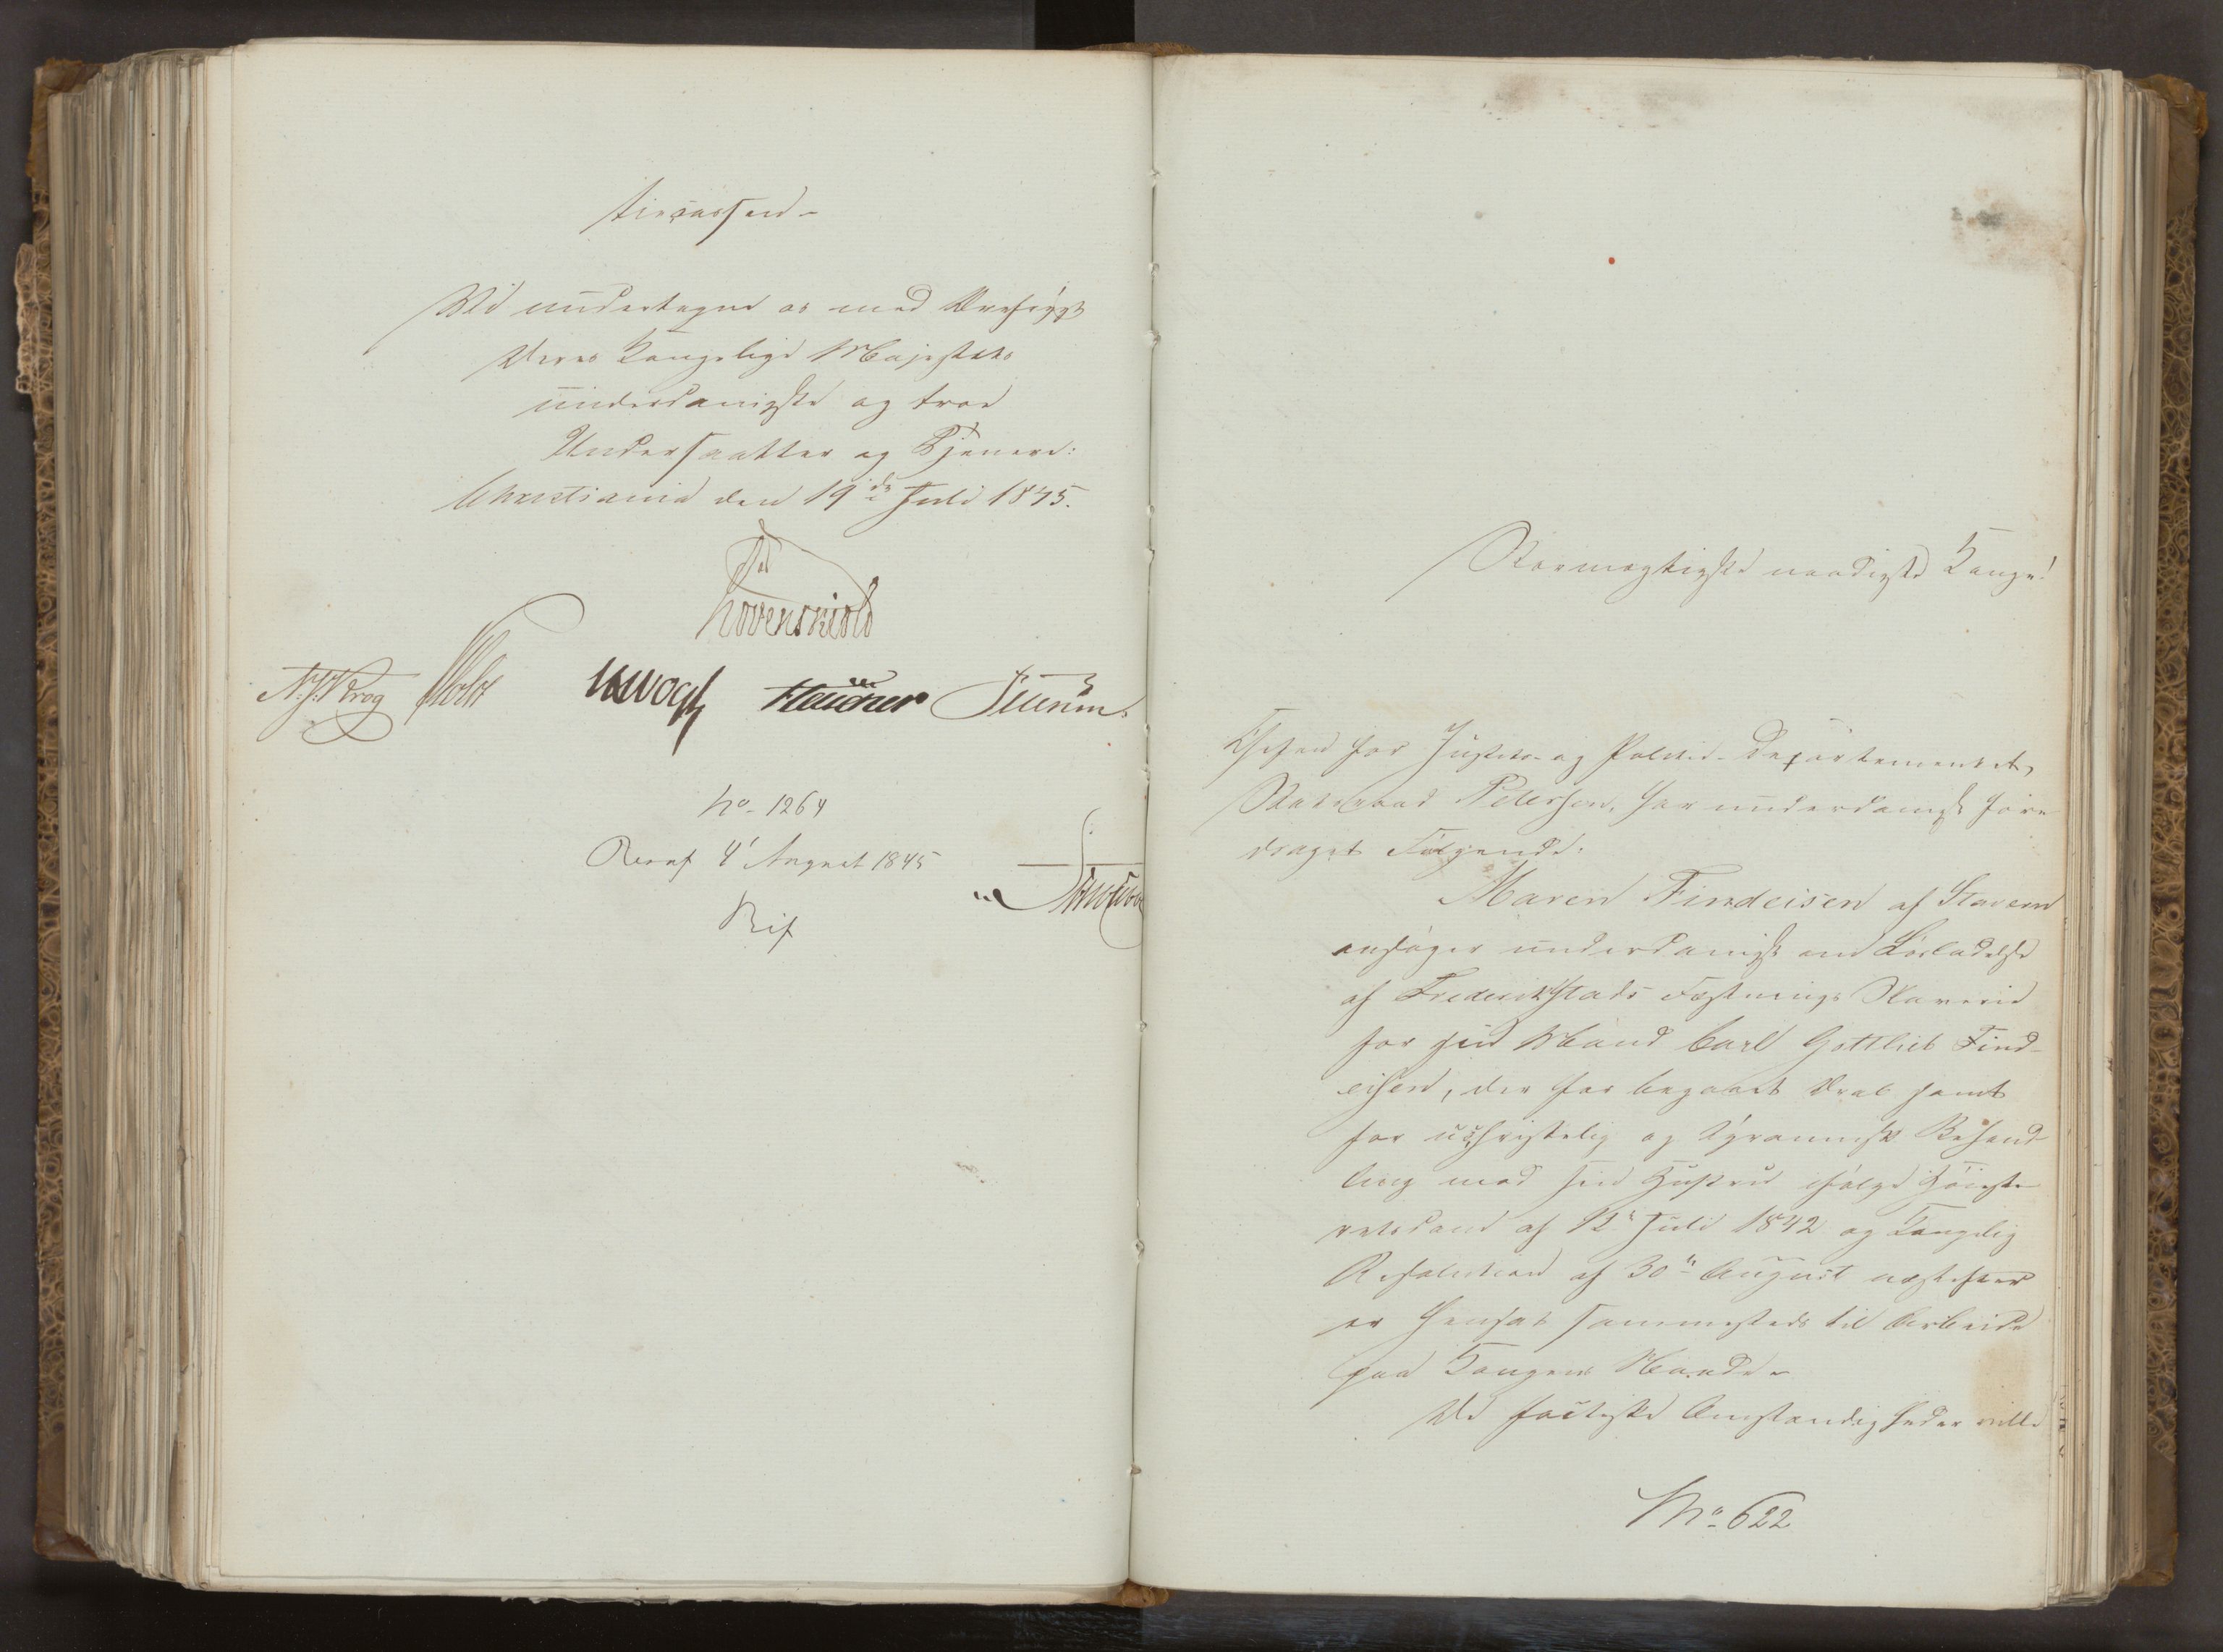 Vi undertegne os med Ærefrygt
Deres Kongelige Majestæts
underdanigste og troe
Undersaatter og Tjenere:
Christiania den 19de Juli 1845.
Løvenskiold
N. J. Krog
Vogt
No. 1264
4' August 1845
Stormægtigste naadigste Konge!
Chefen for Justits- og Politie-Departementet,
Statsraad Petersen, har underdanigst fore-
draget Følgende:
Maren Findeisen af Stavern
ansøger underdanigst om Løsladelse
af Frederikstads Fæstnings Slaverie
for sin Mand Carl Gottlieb Find-
eisen, der for begaaet Drab samt
for uchristelig og tyrannisk Behand-
ling mod sin Hustru ifølge Høieste-
retsdom af 12' Juli 1842 og Kongelig
Resolution af 30' August næstefter
er hensat sammesteds til Arbeide
paa Kongens Naade.
De factiske Omstændigheder ville
No. 622